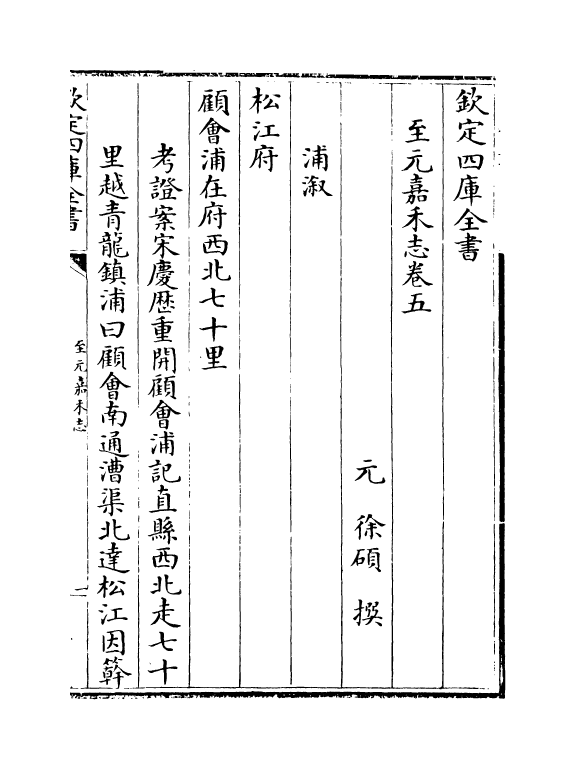 欽定四庫全書
至元嘉禾志卷五
元 徐碩 撰
浦溆
松江府
顧會浦在府西北七十里
考證案宋慶歷重開顧會浦記直縣西北走七十
里越青龍鎮浦曰顧會南通漕渠北達松江因簳
欽定四庫全書
至元嘉禾志
一